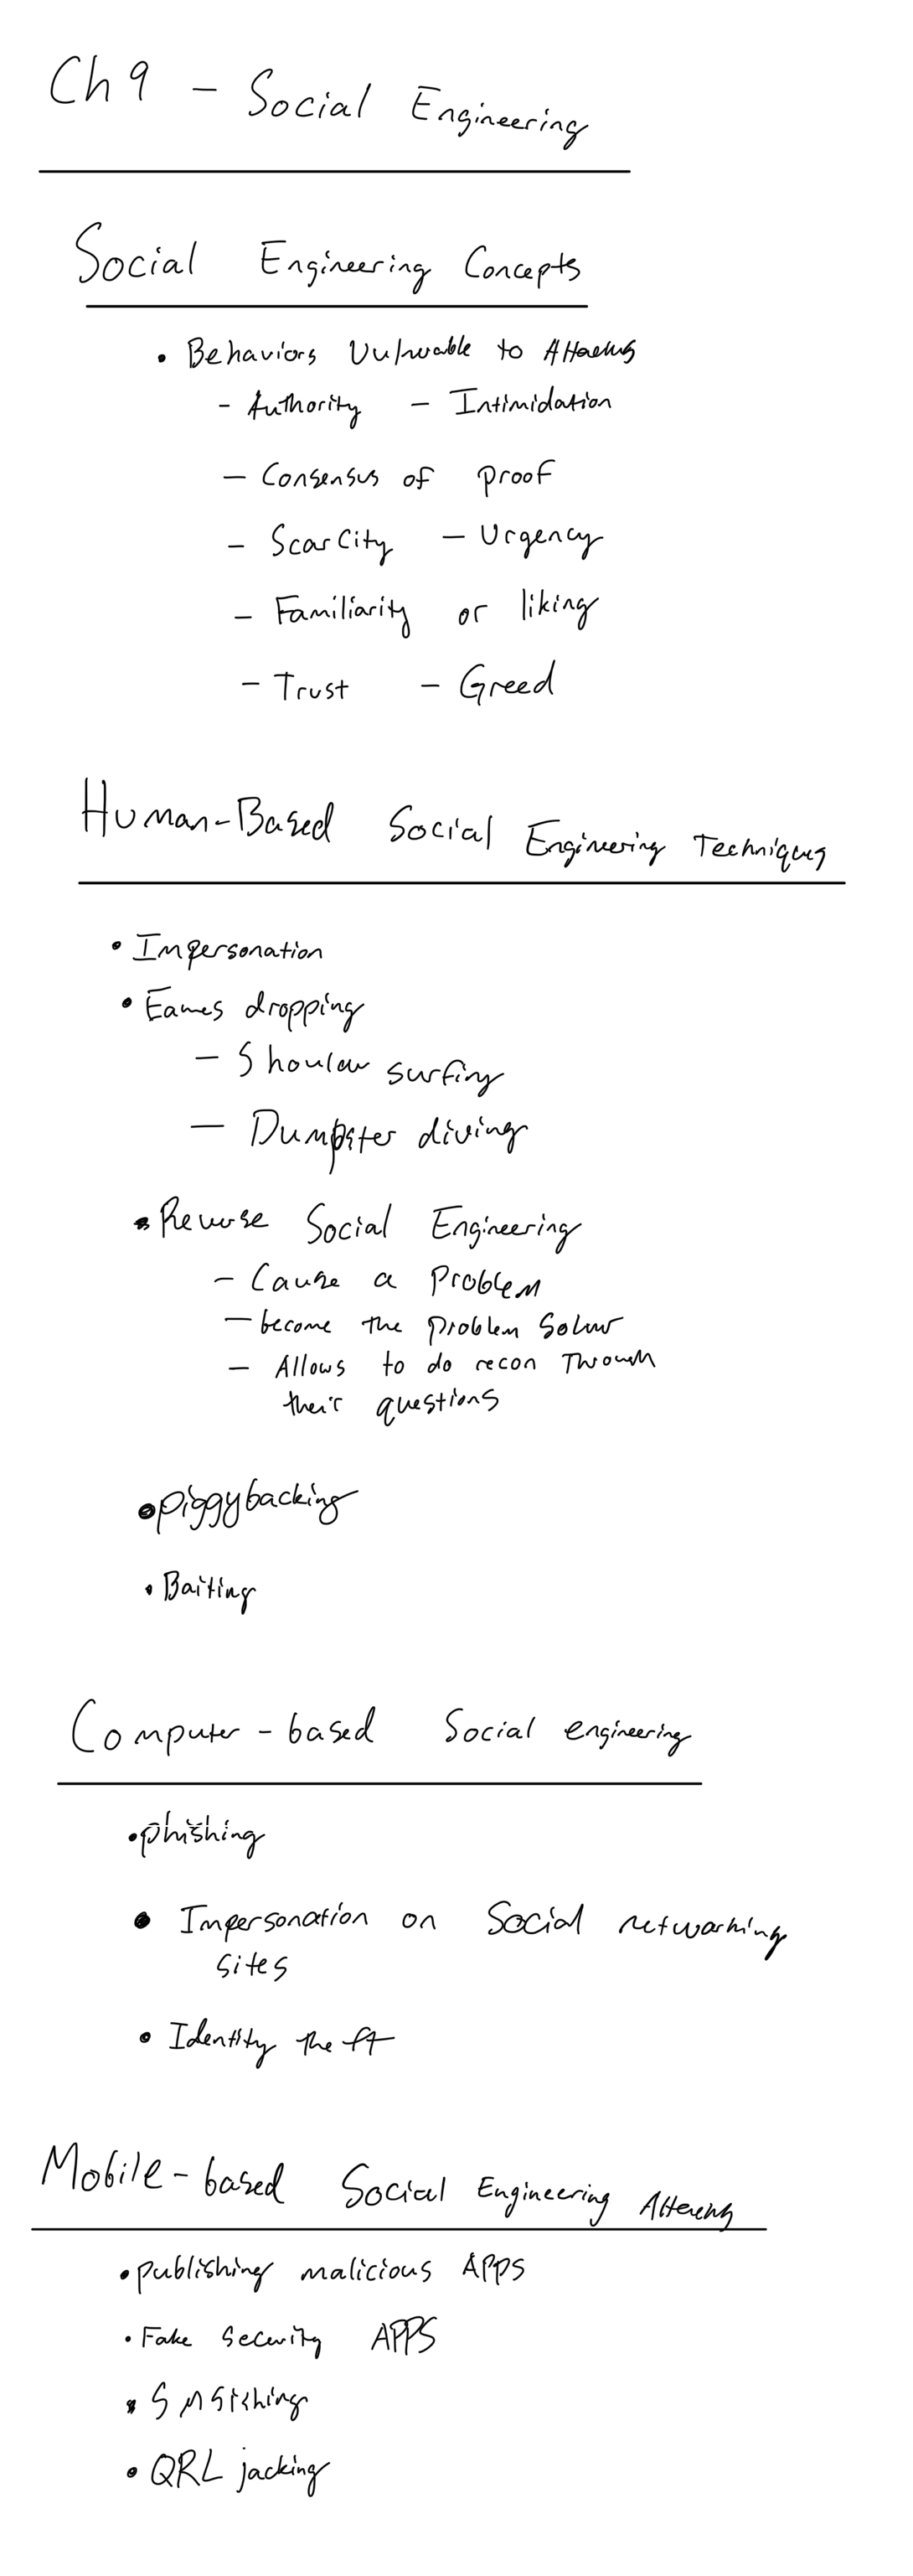 Ch 9 - Social Engineering
Social Engineering Concepts
• Behaviors Vulnerable to Attacks
- Authority - Intimidation
- Consensus of proof
- Scarcity - Urgency
- Familiarity or liking
- Trust - Greed
Human-Based Social Engineering Techniques
• Impersonation
• Eaves dropping
- Shoulder surfing
- Dumpster diving
• Reverse Social Engineering
- Cause a Problem
- become the problem Solver
- Allows to do recon Through
their questions
• piggybacking
• Baiting
Computer-based Social engineering
• phishing
• Impersonation on Social networking
sites
• Identity theft
Mobile-based Social Engineering Attacks
• publishing malicious APPs
• Fake Security APPS
• SMSishing
• QRL jacking